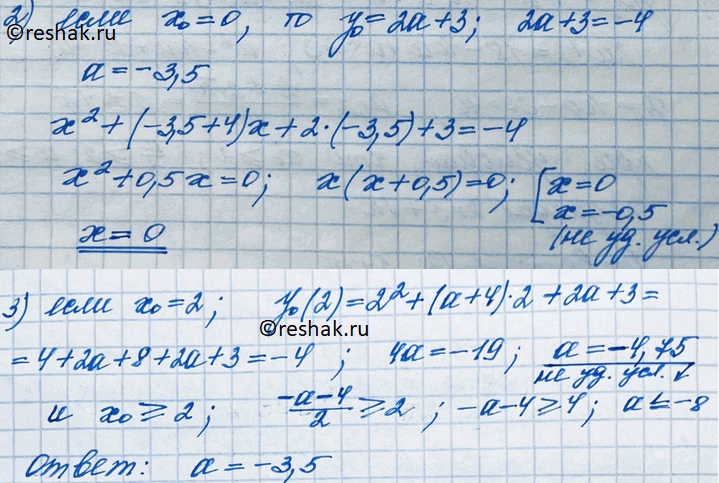 2) если x₀=0, то y₀=2a+3; 2a+3=-4
©reshak.ru
a=-3,5
x²+(-3,5+4)x+2·(-3,5)+3=-4
x²+0,5x=0; x(x+0,5)=0; [x=0
x=-0,5
x=0
(не уд. усл.)
3) если x₀=2; y₀(2)=2²+(a+4)·2+2a+3=
©reshak.ru
=4+2a+8+2a+3=-4; 4a=-19; a=-4,75
не уд. усл.
и x₀≥2; (-a-4)/2≥2; -a-4≥4; a≤-8
Ответ: a=-3,5